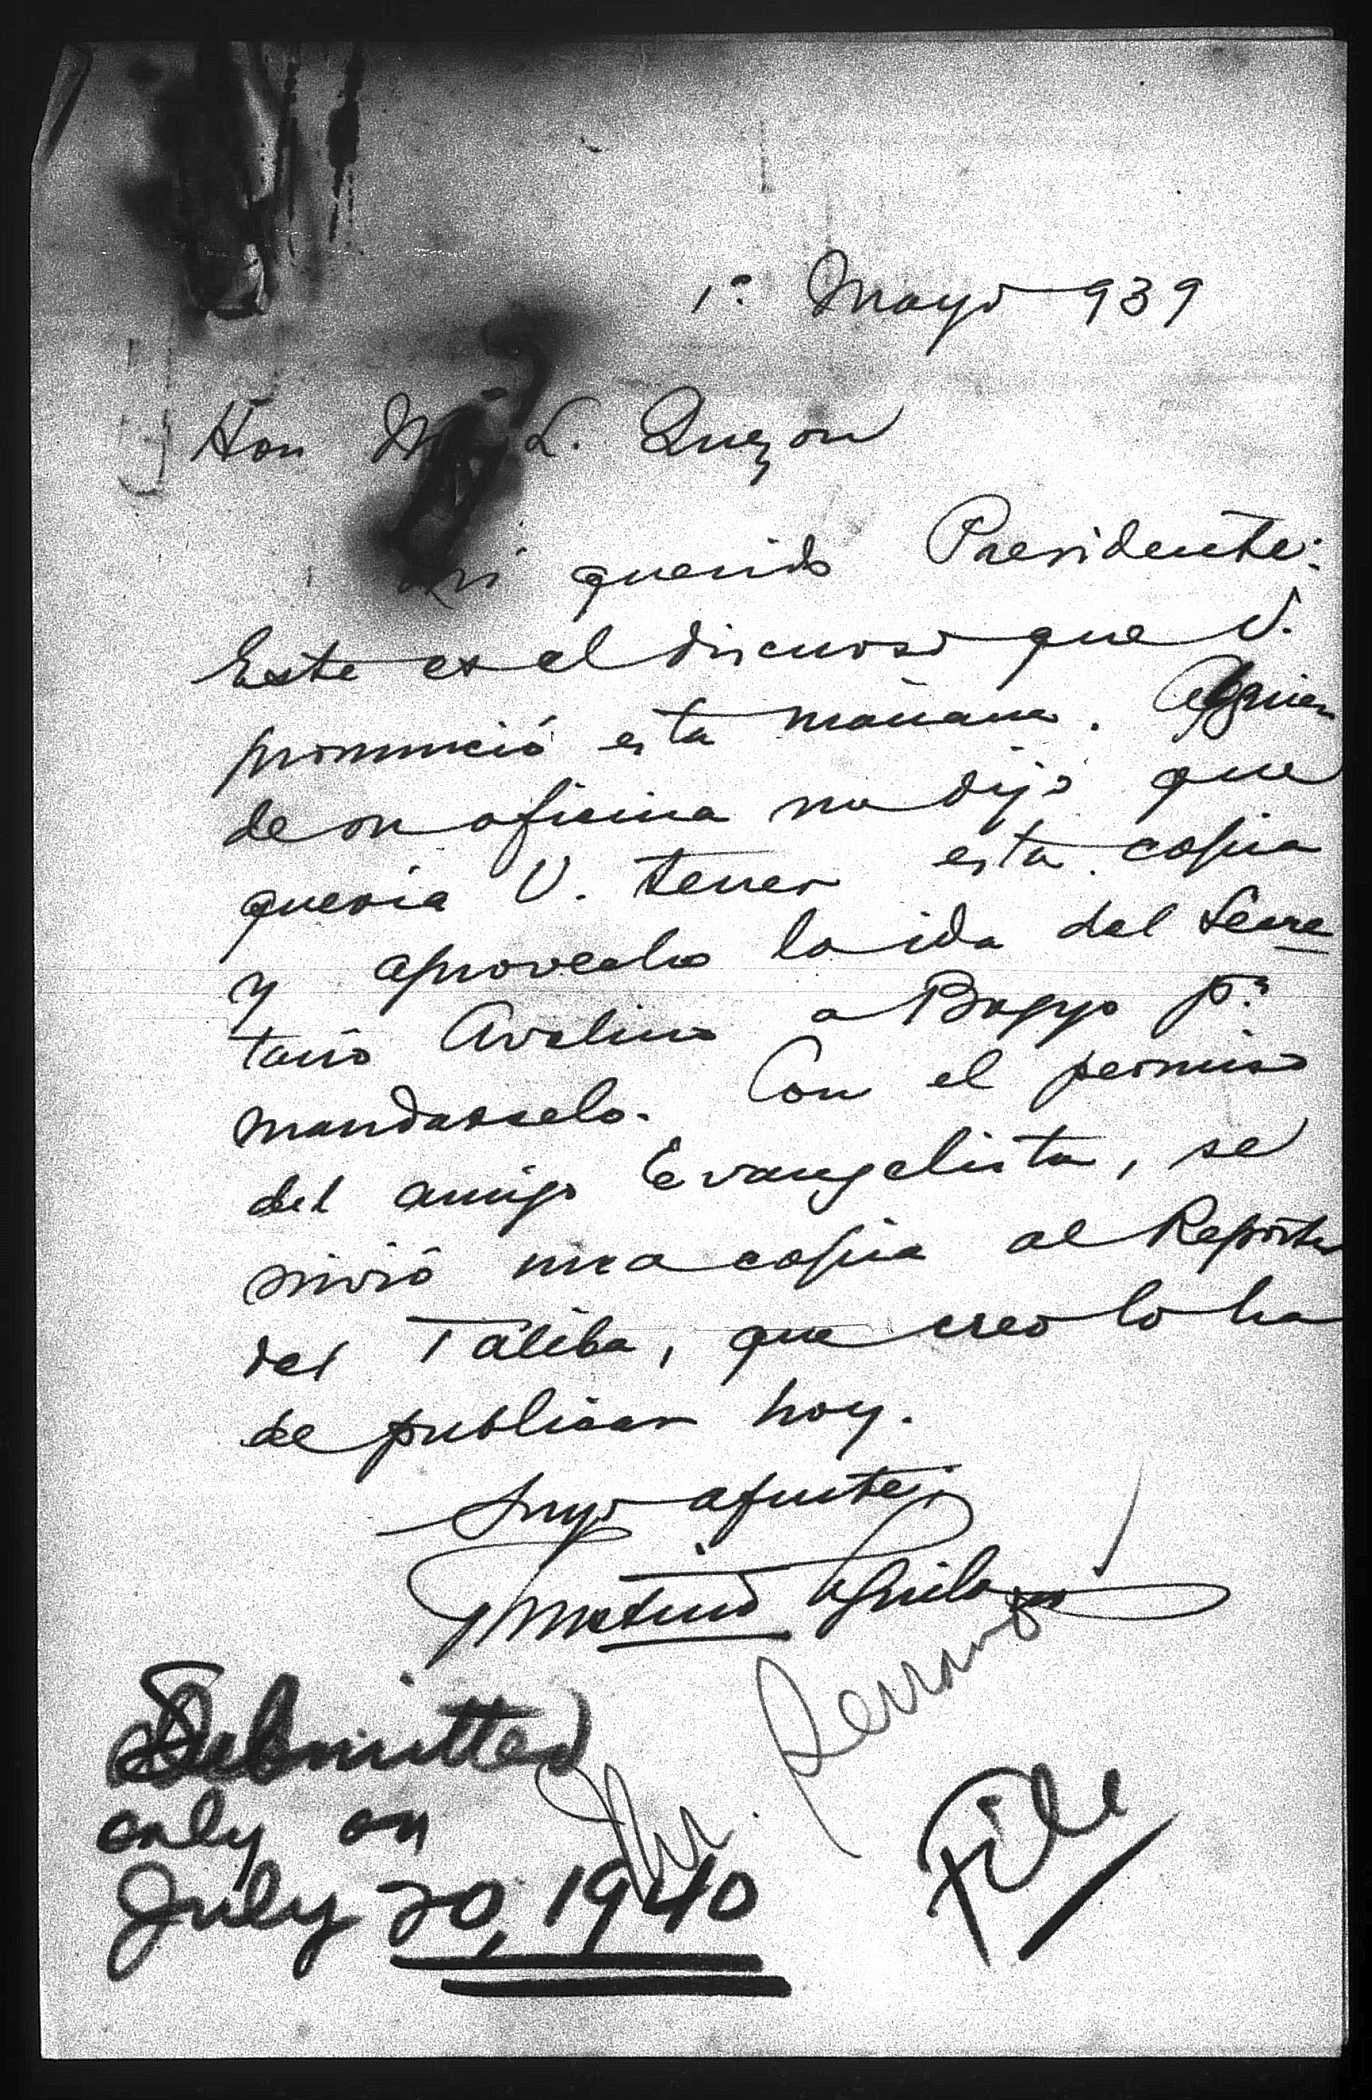 1º Mayo 939
Hon M. L. Quezon
Mi querido Presidente:
Este es el discurso que V.
pronunció esta mañana. Alguien
de su oficina me dijo que
queria V. tener esta copia
y aprovecho la ida del Secre
tario Avelino a Bagyo pª
mandarselo. Con el permiso
del amigo Evangelista, se
sirvió una copia al Reporter
del Taliba, que creo lo ha
de publicar hoy.
Suyo afmte;
Faustino Aguilar
Mr. Serrano
Submitted
only on
July 20, 1940
File